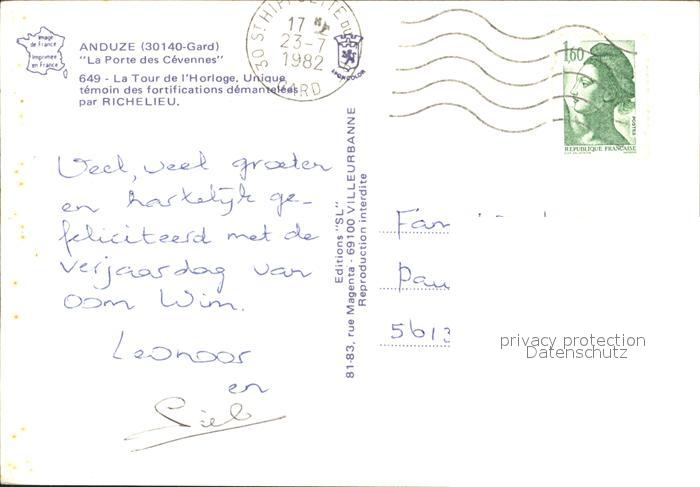 Image
de France
Imprimée
en France
ANDUZE (30140-Gard)
"La Porte des Cévennes"
649 - La Tour de l'Horloge. Unique
témoin des fortifications démantelées
par RICHELIEU.
30 ST HIPPOLYTE DU
17 H
23-7
1982
GARD
LYON COLOR
1,60
POSTES
REPUBLIQUE FRANÇAISE
Veel, veel groeten
en hartelijk ge-
feliciteerd met de
verjaardag van
oom Wim.
Leonoor
en
Editions "SL"
81-83, rue Magenta - 69100 VILLEURBANNE
Reproduction interdite
Fam
Pau
5613
privacy protection
Datenschutz